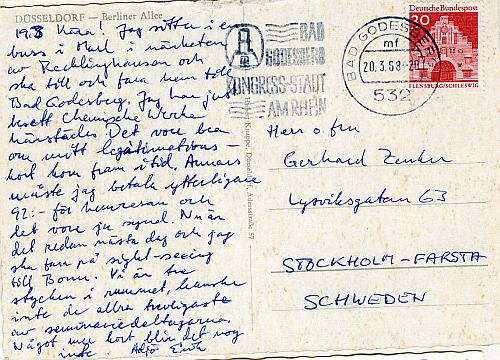 DÜSSELDORF — Berliner Allee
19.3 Hera! Jag sitter i en
buss i Marl i närheten
av Recklinghausen och
ska till och fara hem till
Bad Godesberg. Jag har just
besett Chemische Werke
härstädes. Det vore bra
om mitt legitimations-
kort kom fram i tid. Annars
måste jag betala ytterligare
92:- för hemresan och
det vore ju synd. Nu är
det redan nästa dag och jag
ska fara på sight-seeing
till Bonn. Vi är tre
stycken i rummet, kanske
inte de allra trevligaste
av seminariedeltagarna.
Något mer kort blir det nog
inte. Adjö
BAD
GODESBERG
KONGRESS-STADT
AM RHEIN
BAD GODESBERG
mf
20.3.68-20
532
Deutsche Bundespost
30
FLENSBURG/SCHLESWIG
Herr o fru
Gerhard Zenker
Lysviksgatan 63
STOCKHOLM-FARSTA
SCHWEDEN